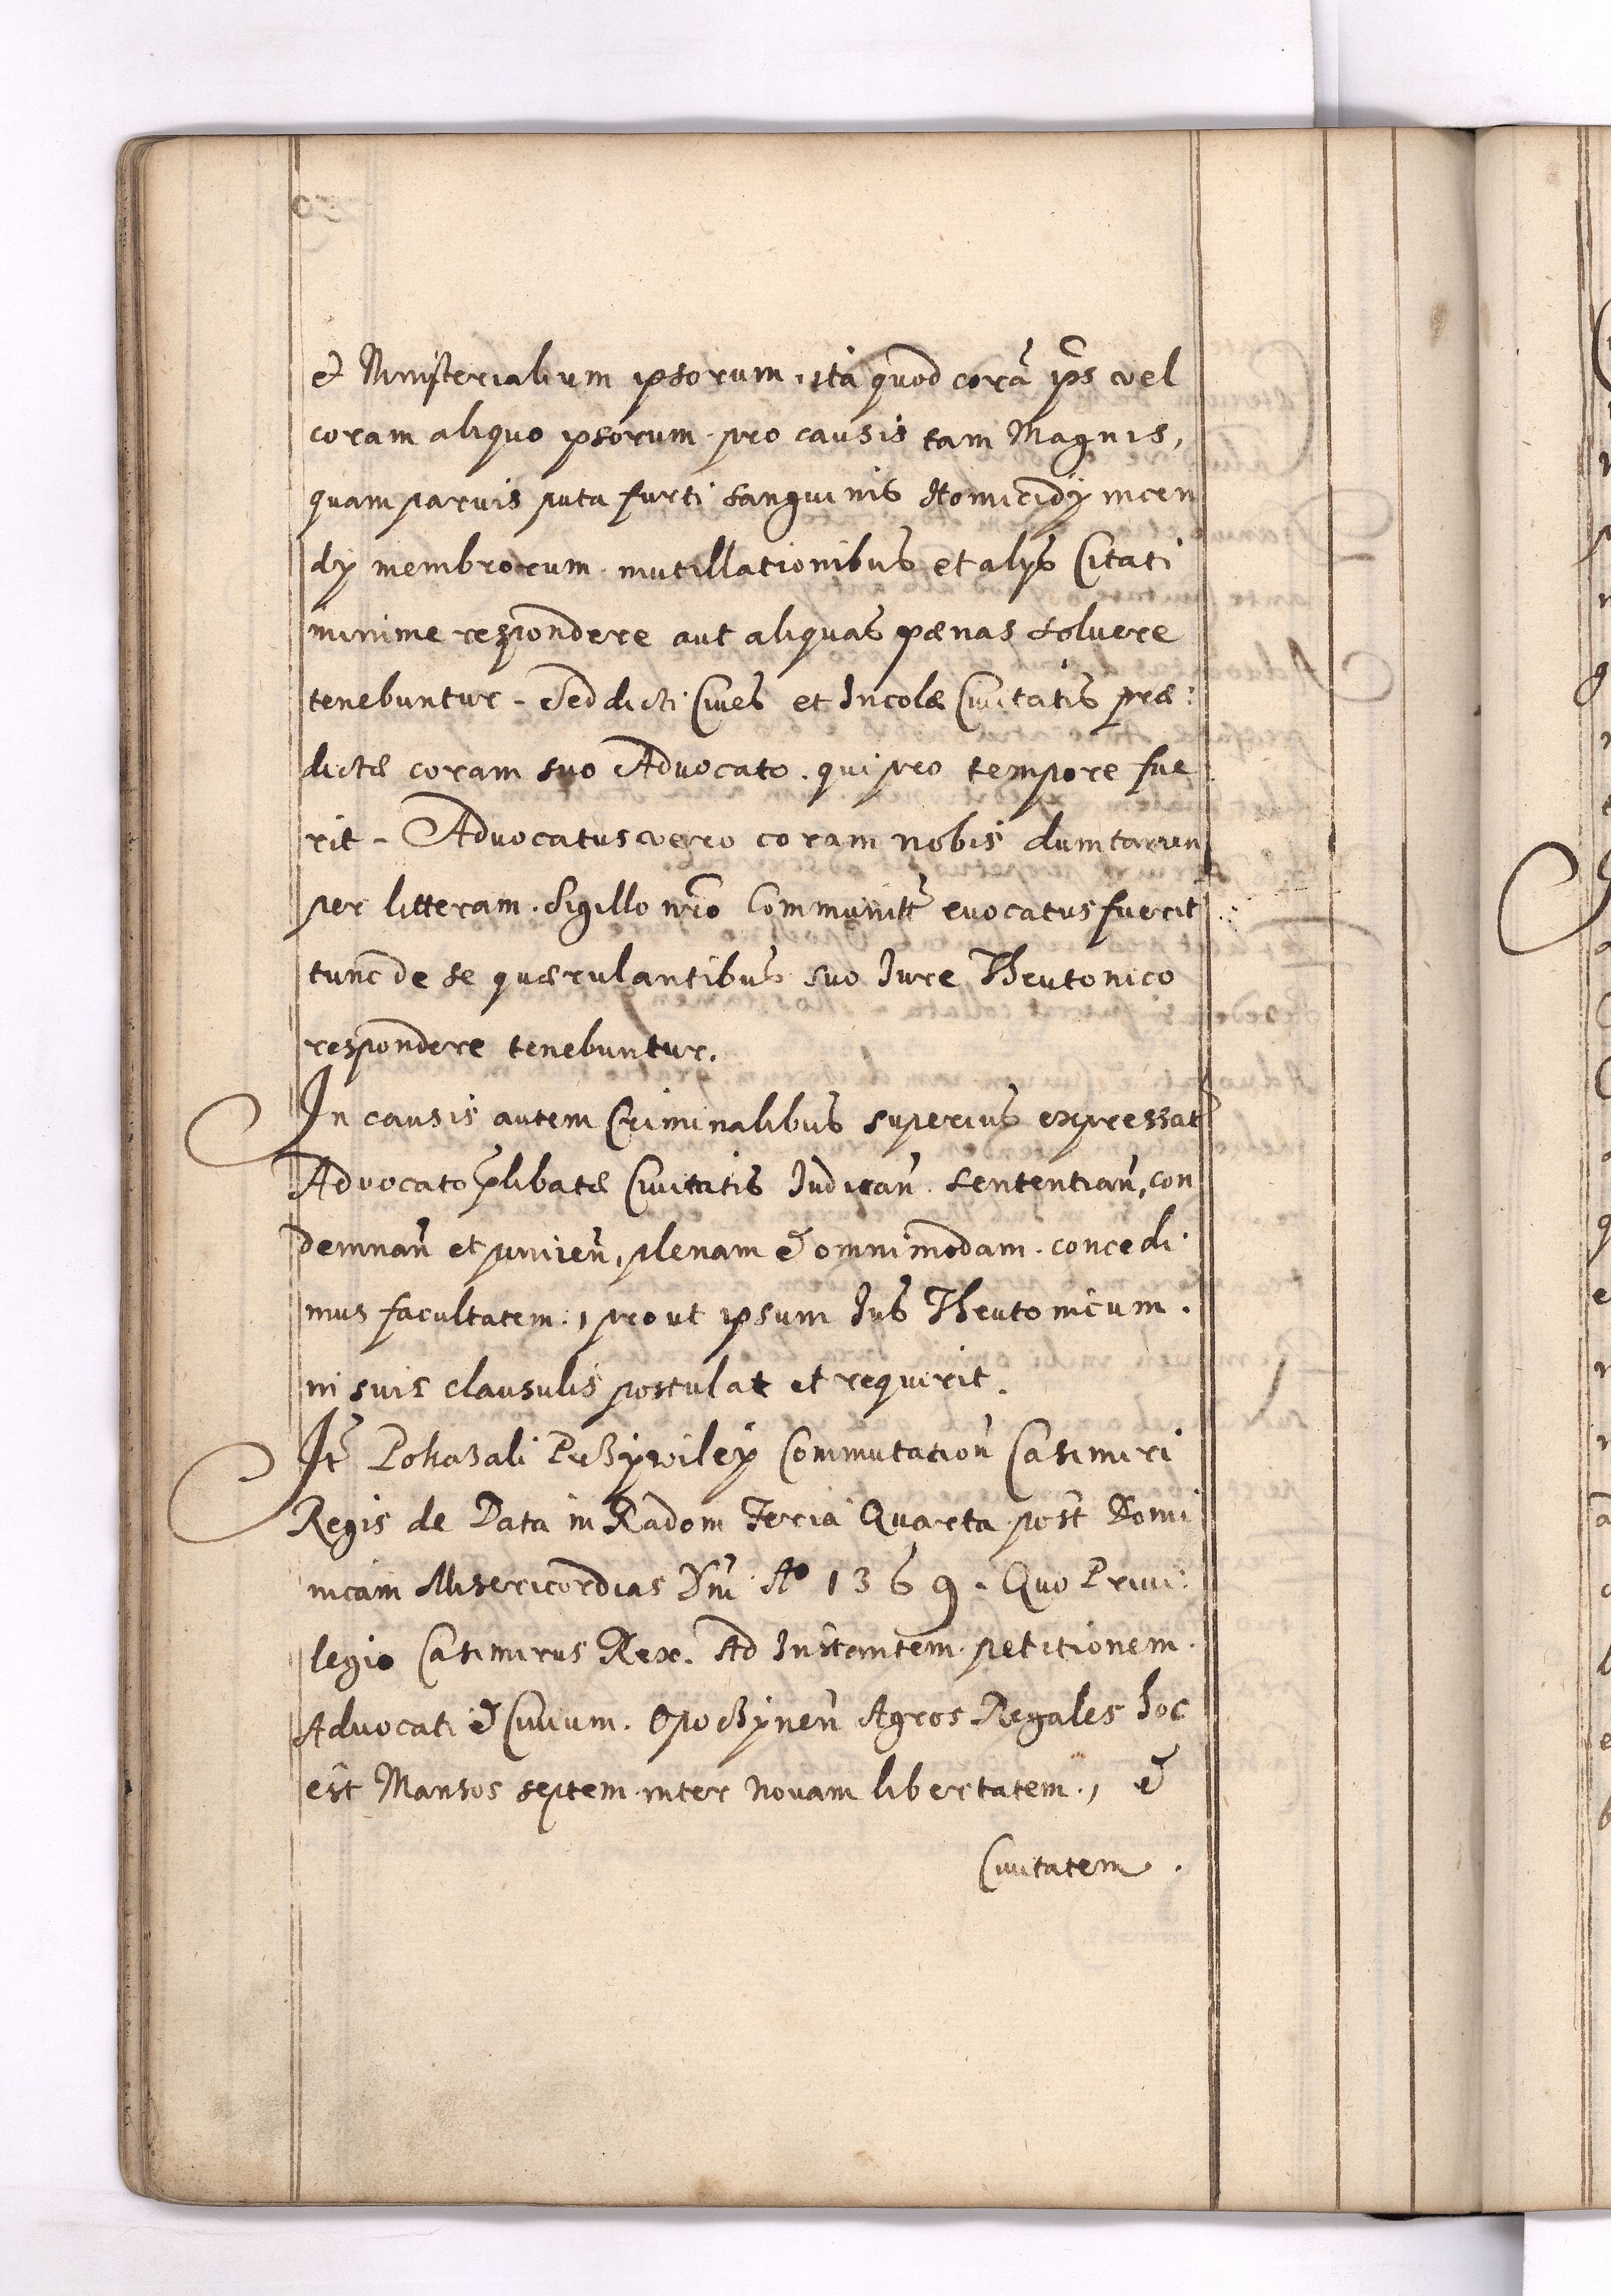 et Ministerialium ipsorum, ita quod corã ip̃s vel
coram aliquo ipsorum pro causis tam Magnis,
quam parvis puta furti sanguinis Homicidÿ incen
dÿ membrorum mutillationibus et alÿs Citati
minime respondere aut aliquas pœnas soluere
tenebuntur - Sed dicti Ciues et Incolæ Ciuitatis præ:
dictæ coram suo Advocato. qui pro tempore fue
rit - Advocatus vero coram nobis dum tamen
per litteram. Sigillo nr̃o Communitt̃ evocatus fuerit
tunc de se quærulantibus suo Iure Theutonico
respondere tenebuntur.
In causis autem Criminalibus superius expressat̃
Advocato p̃libatæ Ciuitatis Iudican̄. sententian̄, con
demnan̄ et punien̄, plenam et omnimodam. concedi
mus facultatem, prout ipsum Ius Theutonicum.
in suis clausulis postulat et requirit.
It̃ Pokazali Przÿwileÿ Commutation̄ Casimiri
Regis de Data in Radom Feria Quarta post Domi
nicam Misericordias Dn̄i A° 1369. Quo Priui:
legio Casimirus Rex. Ad Instantem petitionem.
Advocati et Ciuium. Opoczÿnen̄ Agros Regales hoc
est Mansos septem inter Novam libertatem, et
Ciuitatem.